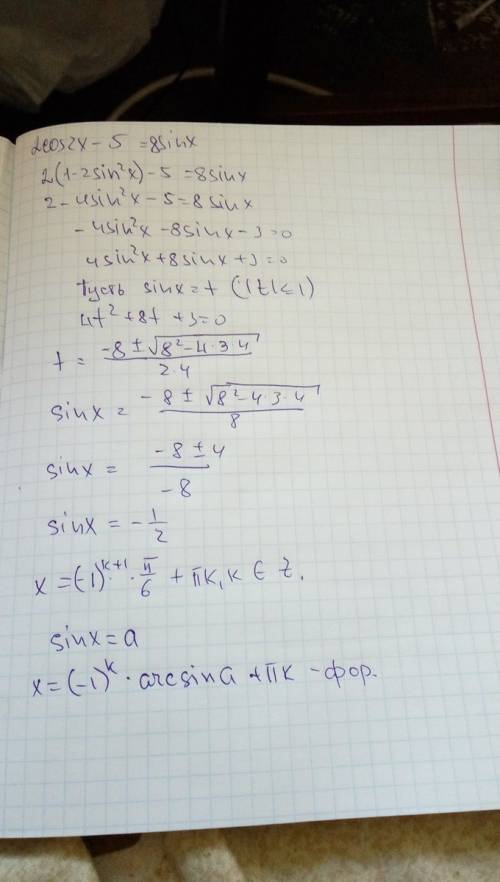 2cos2x - 5 = 8sinx
2(1-2sin²x) - 5 = 8sinx
2 - 4sin²x - 5 = 8sinx
- 4sin²x - 8sinx - 3 = 0
4sin²x + 8sinx + 3 = 0
Пусть sinx = t (|t| ≤ 1)
4t² + 8t + 3 = 0
t = (-8 ± √(8² - 4·3·4))/(2·4)
sinx = (-8 ± √(8² - 4·3·4))/8
sinx = (-8 ± 4)/-8
sinx = -1/2
x = (-1)^(k+1) · π/6 + πk, k ∈ Z.
sinx = a
x = (-1)^k · arcsina + πk - фор.